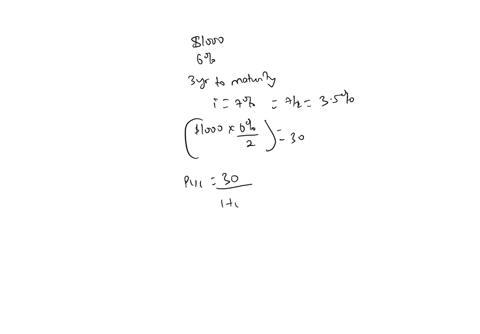 $1000
6%
3yr to maturity
i = 7% = 7/2 = 3.5%
($1000 × 6%/2) = 30
= 30/1+i